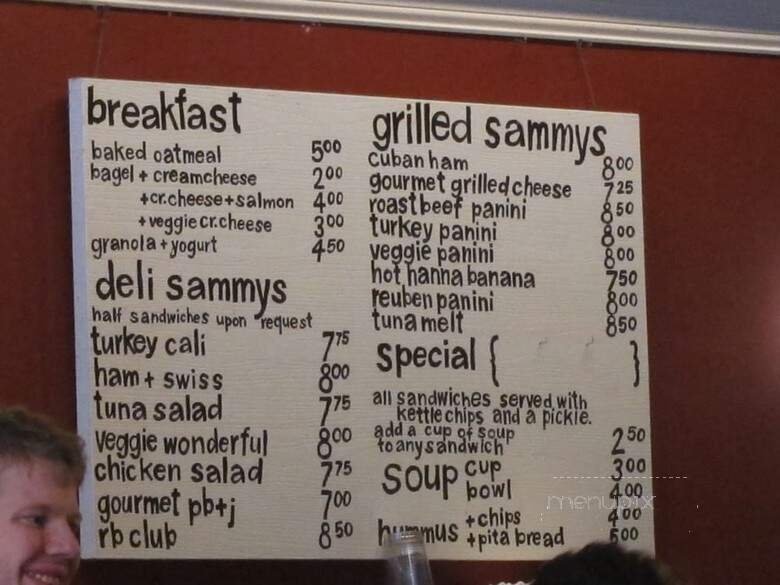 breakfast
baked oatmeal 5.00
bagel + creamcheese 2.00
+cr.cheese+salmon 4.00
+veggie cr.cheese 3.00
granola+yogurt 4.50
deli sammys
half sandwiches upon request
turkey cali 7.75
ham + swiss 8.00
tuna salad 7.75
veggie wonderful 8.00
chicken salad 7.75
gourmet pb+j 7.00
rb club 8.50
grilled sammys
cuban ham 8.00
gourmet grilled cheese 7.25
roast beef panini 8.50
turkey panini 8.00
veggie panini 8.00
hot hanna banana 7.50
reuben panini 8.00
tuna melt 8.50
special { }
all sandwiches served with
kettle chips and a pickle.
add a cup of soup
to any sandwich 2.50
soup cup 3.00
bowl 4.00
hummus +chips 4.00
+pita bread 5.00
menupix